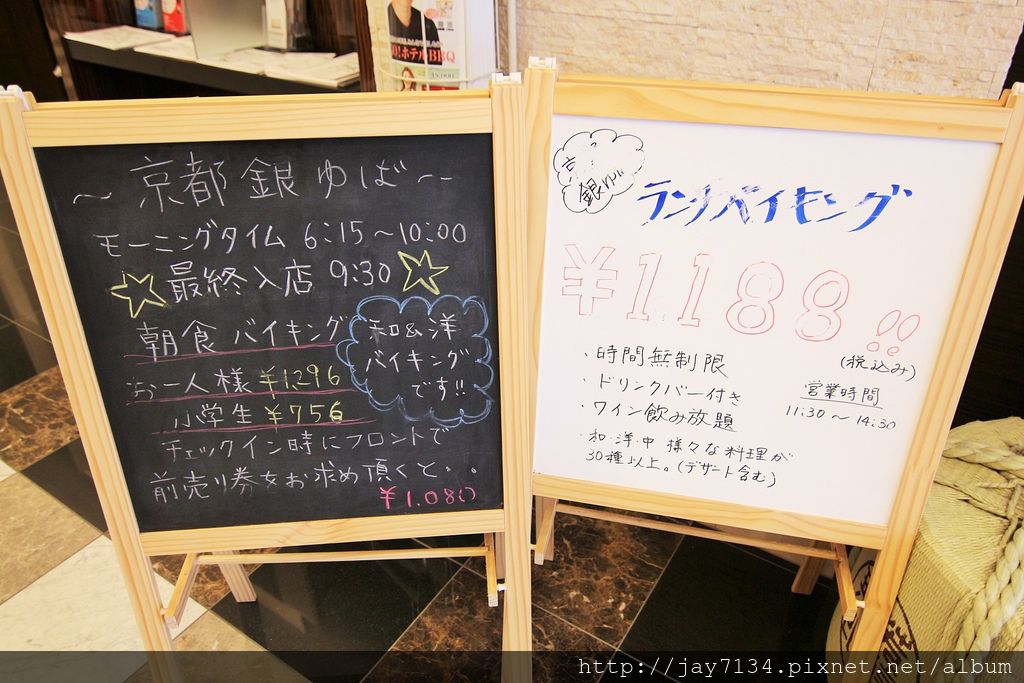 !ホテルBBQ
～京都 銀ゆば～
モーニングタイム 6:15～10:00
最終入店 9:30
朝食バイキング
和&洋
バイキング
です!!
お一人様 ¥1296
小学生 ¥756
チェックイン時にフロントで
前売り券をお求め頂くと、、
¥1.080
京
銀ゆば
ランチバイキング
¥1.188!!
(税込み)
・時間無制限
・ドリンクバー付き
・ワイン飲み放題
・和・洋・中 様々な料理が
30種以上。(デザート含む)
営業時間
11:30～14:30
http://jay7134.pixnet.net/album